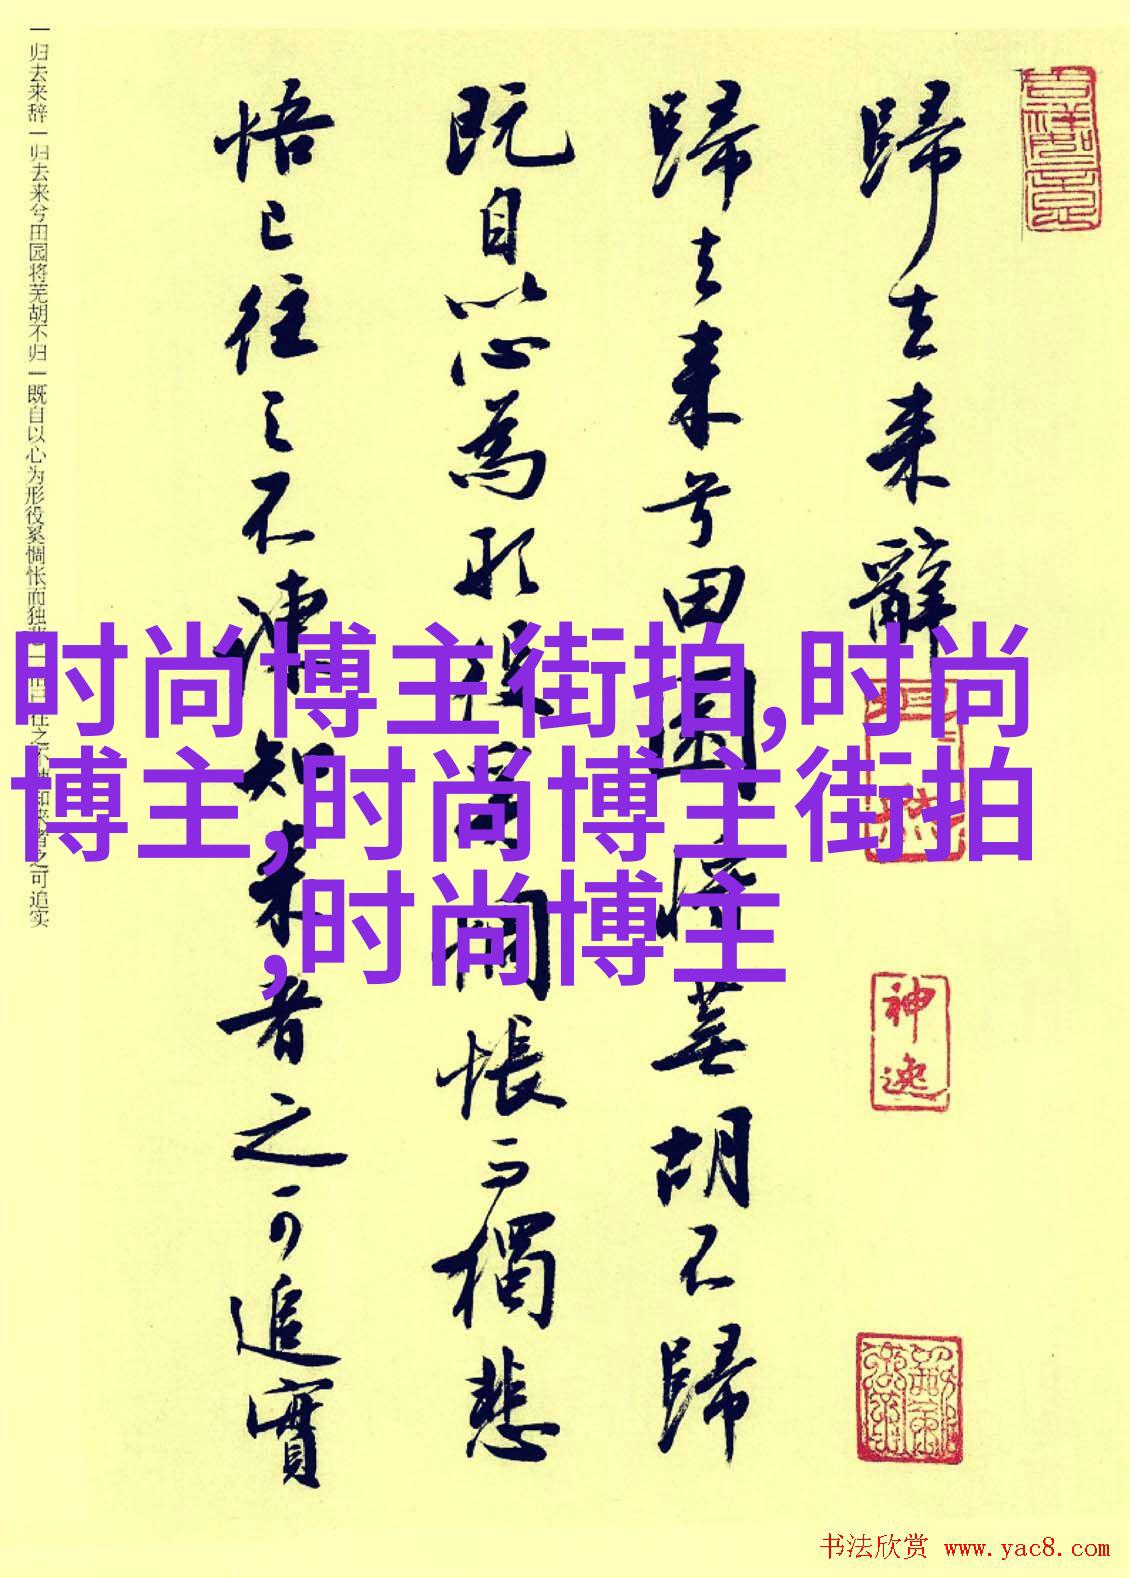 歸去来辭
歸去来兮田園将蕪胡不歸
既自以心為形役奚惆悵而獨悲
悟已往之不諫知来者之可追實
神逸
一归去来辞一归去来兮田园将芜胡不归一既自以心为形役奚惆怅而独悲一悟已往之不谏知来者之可追实
时尚博主街拍,时尚
博主,时尚博主街拍
,时尚博主
书法欣赏 www.yac8.com